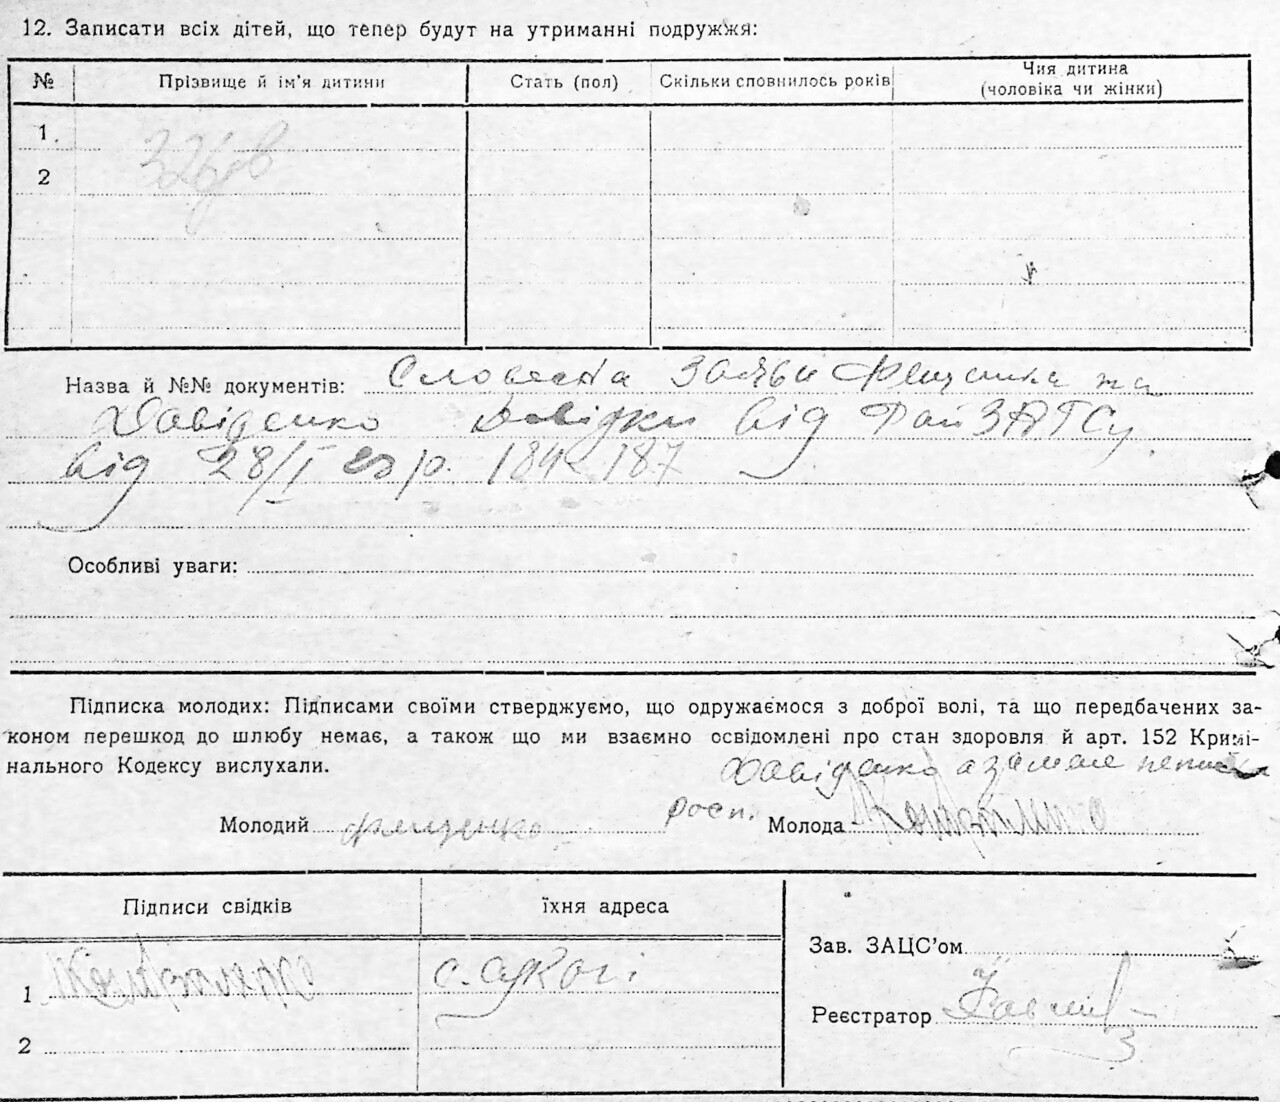 12. Записати всіх дітей, що тепер будут на утриманні подружжя:
№ Прізвище й ім'я дитини Стать (пол) Скільки сповнилось років Чия дитина (чоловіка чи жінки)
1.
2
Назва й №№ документів: Словесна заява Фещенка та
Давіденко довідки від РайЗАГСу
від 28/І 187
Особливі уваги:
Підписка молодих: Підписами своїми стверджуємо, що одружаємося з доброї волі, та що передбачених за-
коном перешкод до шлюбу немає, а також що ми взаємно освідомлені про стан здоровля й арт. 152 Кримі-
нального Кодексу вислухали.
Давіденко а за мене
Молодий Фещенко росп. Молода
Підписи свідків їхня адреса
Зав. ЗАЦС'ом
1 с.
Реєстратор
2